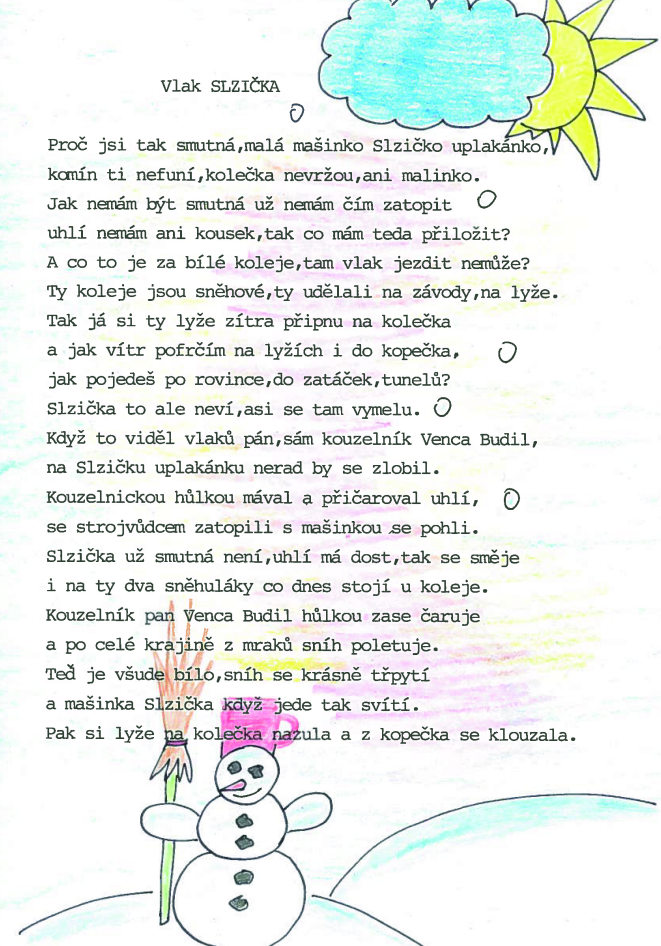 Vlak SLZIČKA
Proč jsi tak smutná,malá mašinko Slzičko uplakánko,
komín ti nefuní,kolečka nevržou,ani malinko.
Jak nemám být smutná už nemám čím zatopit
uhlí nemám ani kousek,tak co mám teda přiložit?
A co to je za bílé koleje,tam vlak jezdit nemůže?
Ty koleje jsou sněhové,ty udělali na závody,na lyže.
Tak já si ty lyže zítra připnu na kolečka
a jak vítr pofrčím na lyžích i do kopečka,
jak pojedeš po rovince,do zatáček,tunelů?
Slzička to ale neví,asi se tam vymelu.
Když to viděl vlaků pán,sám kouzelník Venca Budil,
na Slzičku uplakánku nerad by se zlobil.
Kouzelnickou hůlkou mával a přičaroval uhlí,
se strojvůdcem zatopili s mašinkou se pohli.
Slzička už smutná není,uhlí má dost,tak se směje
i na ty dva sněhuláky co dnes stojí u koleje.
Kouzelník pan Venca Budil hůlkou zase čaruje
a po celé krajině z mraků sníh poletuje.
Teď je všude bílo,sníh se krásně třpytí
a mašinka Slzička když jede tak svítí.
Pak si lyže na kolečka nazula a z kopečka se klouzala.